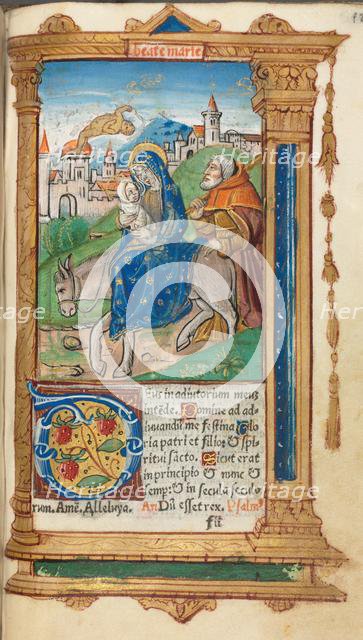 beate marie
Deus in adiutorium meus
intēde. Domine ad ad-
iuuandū me festina Glo
ria patri et filio: & spi
ritui sācto. Sicut erat
in principio & nunc &
semp: & in secula seculo
rum. Amē. Alleluya. An Dū esset rex. Psalm⁹
Heritage
Heritage
Heritage
Heritage
Heritage
Heritage
Images
Images
Images
Images